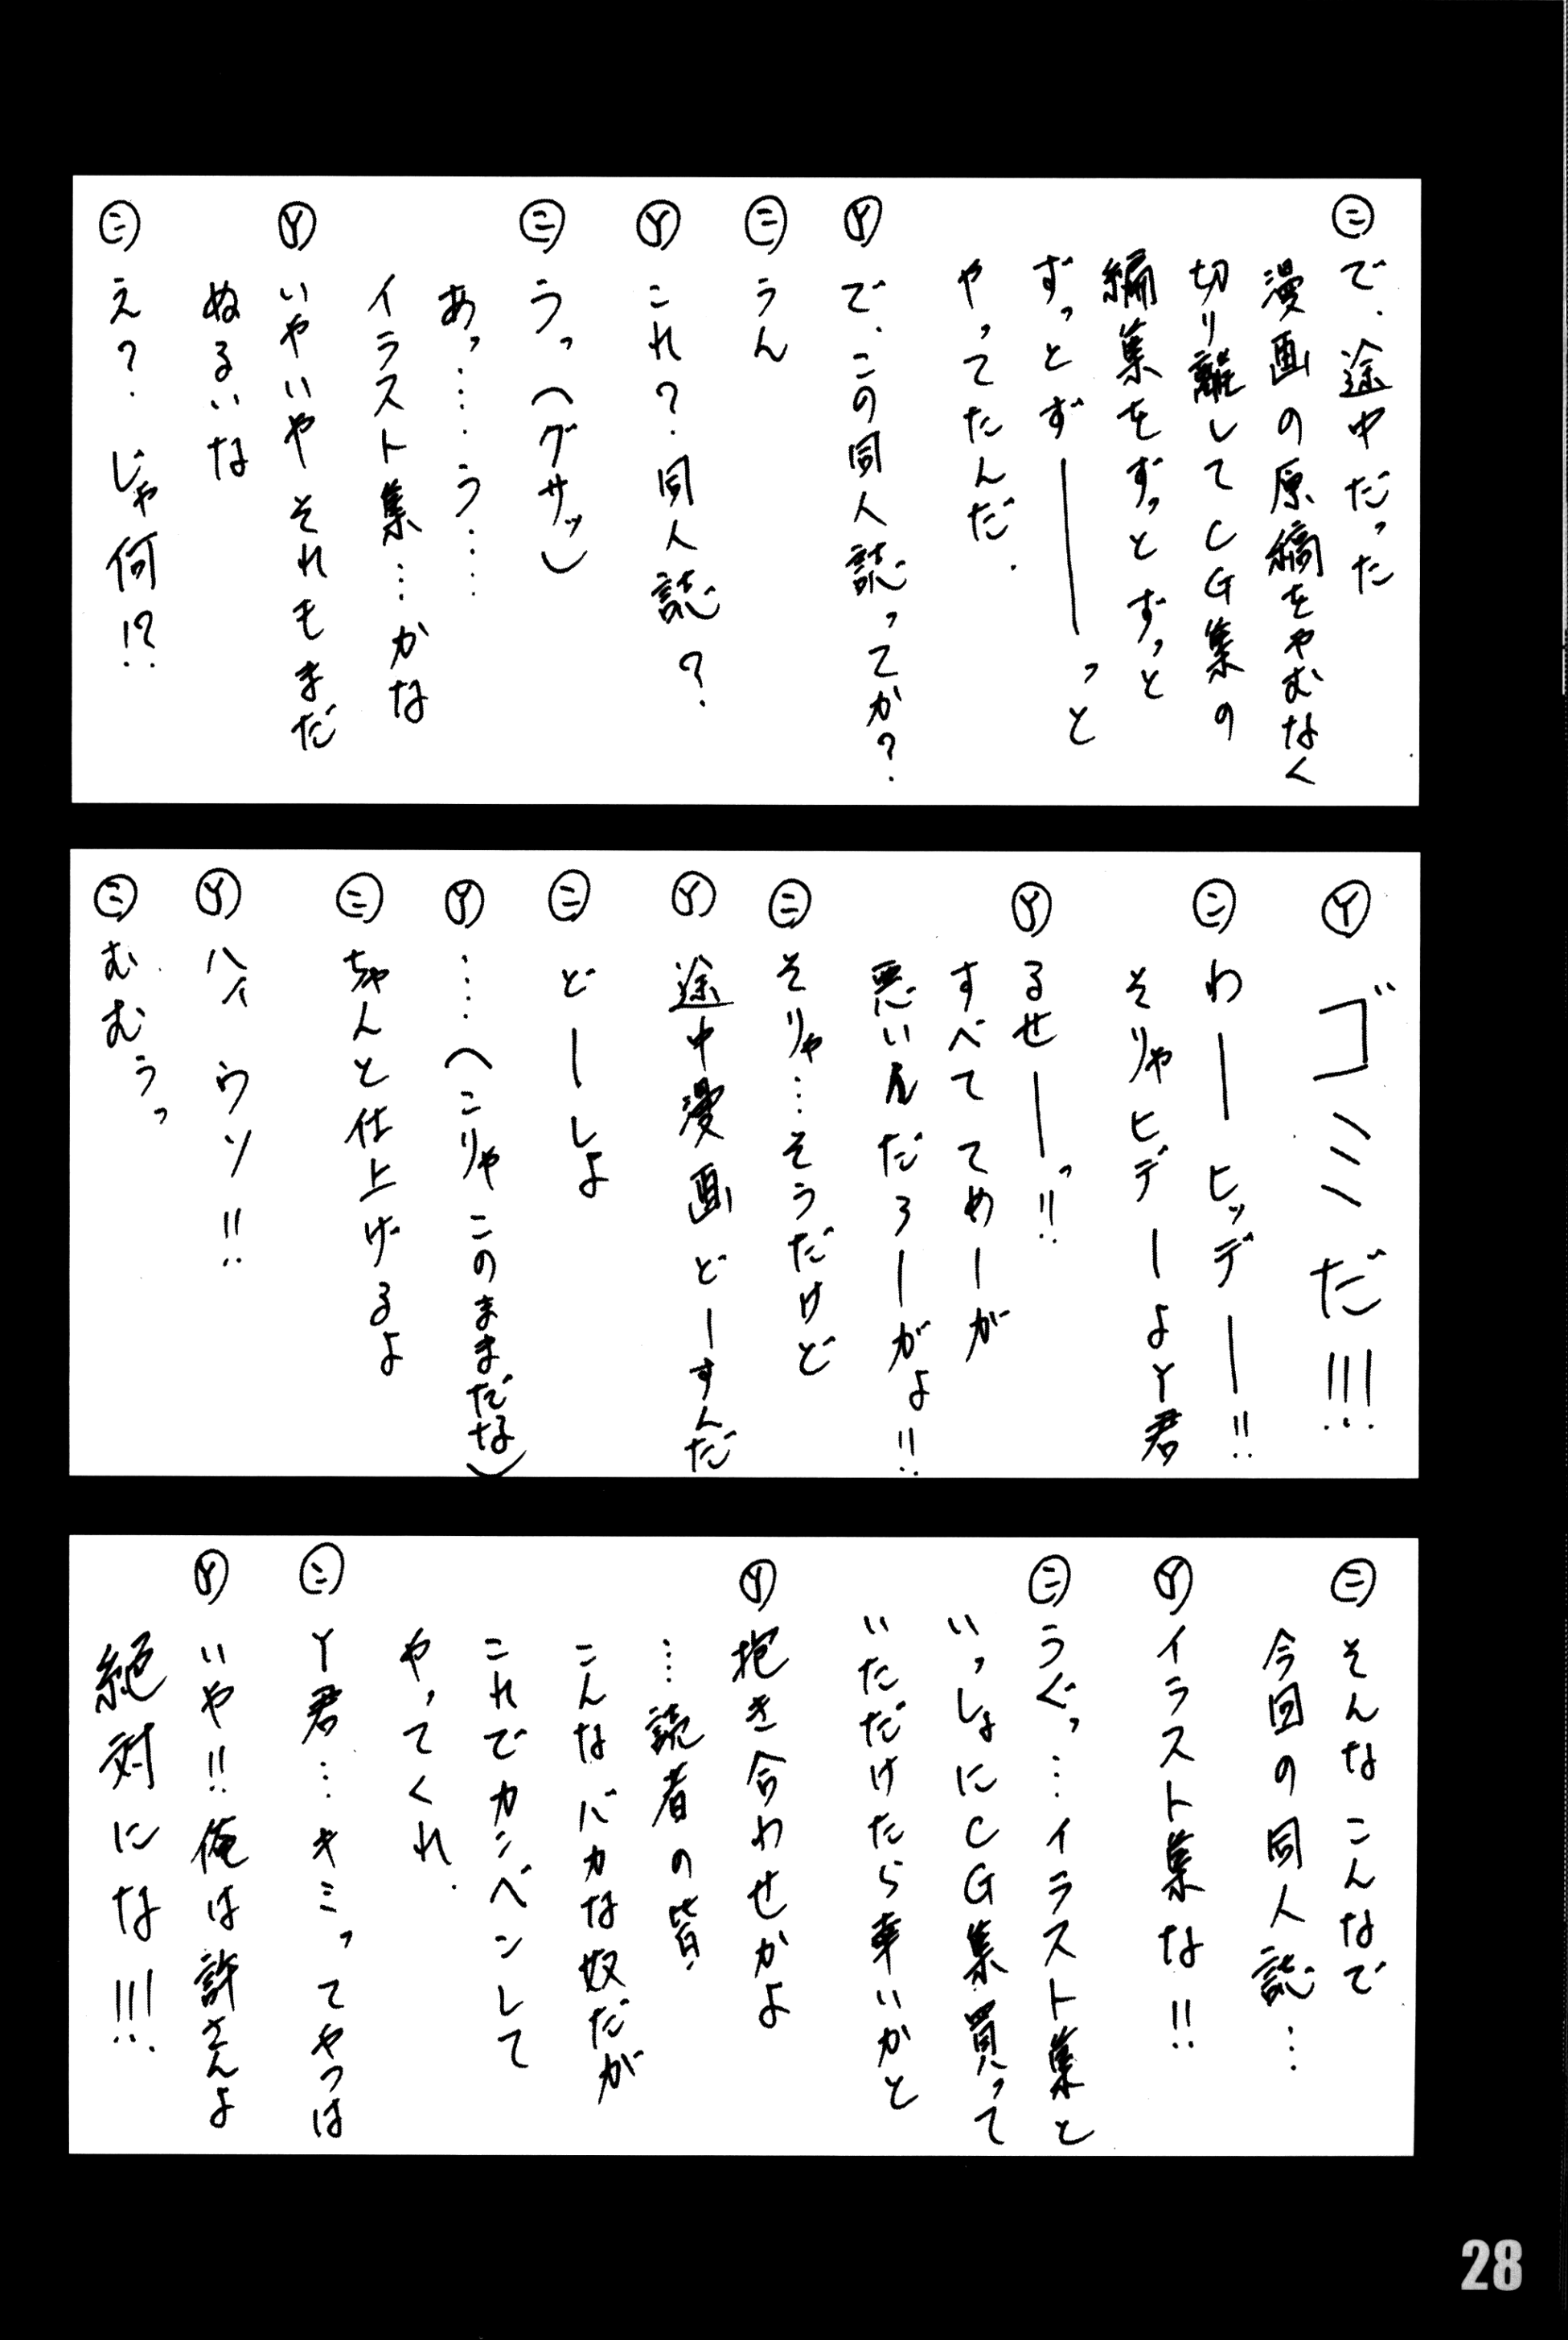 ㊁で、途中だった
漫画の原稿をやむなく
切り離してCG集の
編集をずっとずっと
ずっとず――――っと
やってたんだ.
Ⓨで、この同人誌ってか?
㊁うん
Ⓨこれ?同人誌?
㊁うっ(グサッ)
あっ……う……
イラスト集…かな
Ⓨいやいや それもまだ
ぬるいな
㊁え?.じゃ何!?
Ⓨゴミだ!!!
㊁わ――ヒッデ――!!
そりゃヒデーよY君
Ⓨるせ――っ!!
すべててめーが
悪いんだろーがよ!!
㊁そりゃ…そうだけど
Ⓨ途中漫画どーすんだ
㊁どーしよ
Ⓨ…(こりゃこのままだな)
㊁ちゃんと仕上げるよ
Ⓨハイ ウソ!!
㊁むむぅっ
㊁そんな こんなで
今回の同人誌…
Ⓨイラスト集な!!
㊁うぐっ…イラスト集と
いっしょにCG集買って
いただけたら幸いかと
Ⓨ抱き合わせかよ
…読者の皆、
こんなバカな奴だが
これでカンベンして
やってくれ.
㊁Y君…キミってやつは
Ⓨいや!!俺は許さんよ
絶対にな!!!
28